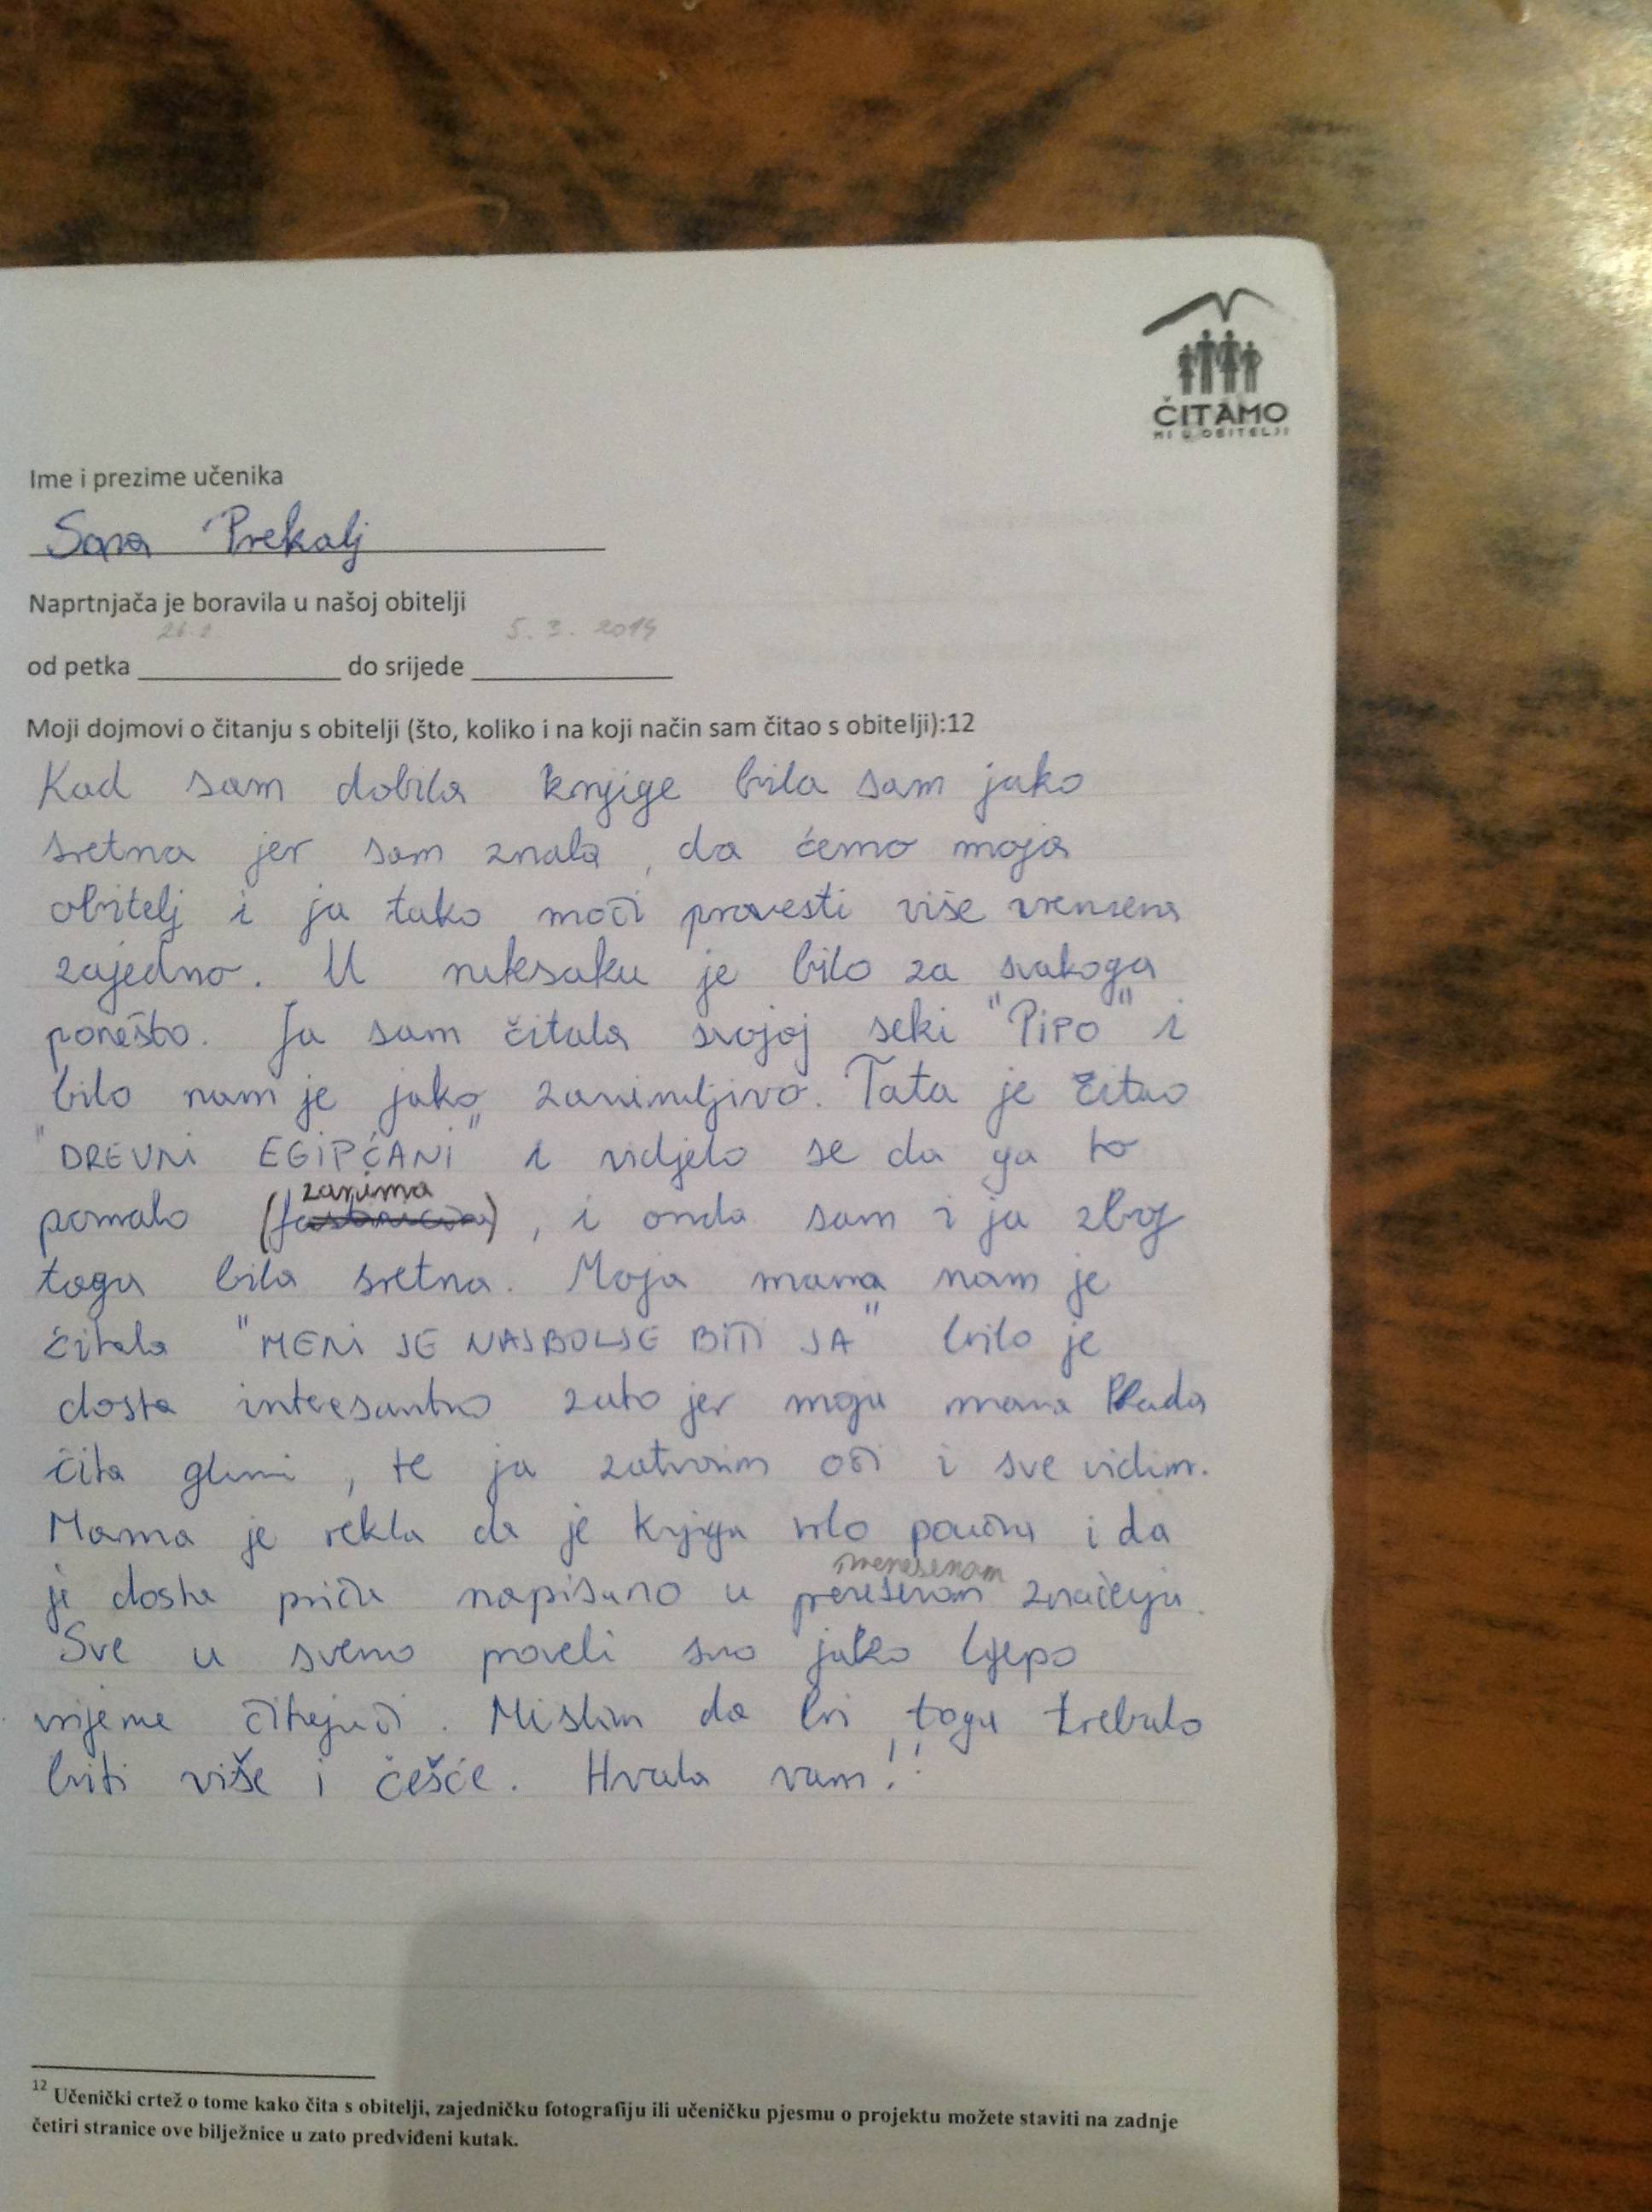 ČITAMO
MI U OBITELJI
Ime i prezime učenika
Sara Prekalj
Naprtnjača je boravila u našoj obitelji
5. 3. 2014
od petka do srijede
Moji dojmovi o čitanju s obitelji (što, koliko i na koji način sam čitao s obitelji):12
Kad sam dobila knjige bila sam jako
sretna jer sam znala, da ćemo moja
obitelj i ja tako moći provesti više vremena
zajedno. U ruksaku je bilo za svakoga
ponešto. Ja sam čitala svojoj seki "PiPO" i
bilo nam je jako zanimljivo. Tata je čitao
"DREVNI EGiPĆANi" i vidjelo se da ga to
zanima
pomalo ( ), i onda sam i ja zbog
toga bila sretna. Moja mama nam je
čitala "MENI JE NAJBOLJE BITI JA" bilo je
dosta interesantno zato jer moja mama kada
čita glumi, te ja zatvorim oči i sve vidim.
Mama je rekla da je knjiga vrlo poučna i da
je dosta priča napisano u značenju.
Sve u svemu proveli smo jako ljepo
vrijeme čitajući. Mislim da bi toga trebalo
biti više i češće. Hvala vam!!
12 Učenički crtež o tome kako čita s obitelji, zajedničku fotografiju ili učeničku pjesmu o projektu možete staviti na zadnje
četiri stranice ove bilježnice u zato predviđeni kutak.